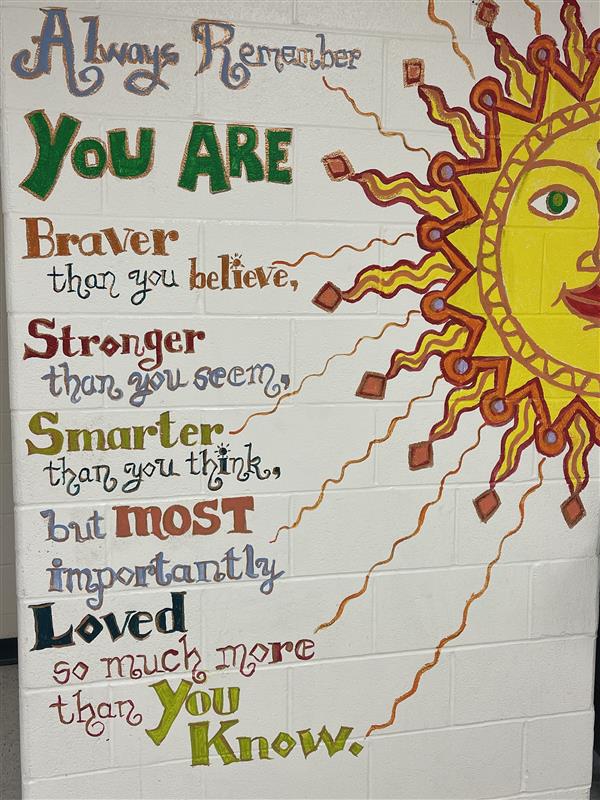 Always Remember
YOU ARE
Braver
than you believe,
Stronger
than you seem,
Smarter
than you think,
but MOST
importantly
Loved
so much more
than You
Know.